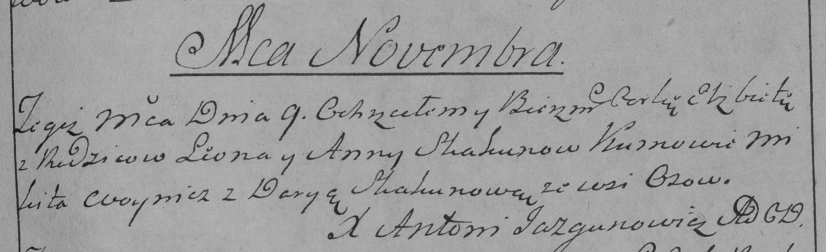 Mca Novembra.
Tegiż Mca Dnia 9. Ochrzciłem y Bierzm Corkę Elzbietę
z Rodzicow Leona y Anny Skakunow Kumowie Mi
kita Woynicz z Daryą Skakunową ze wsi Osow.
X Antoni Jazgunowicz